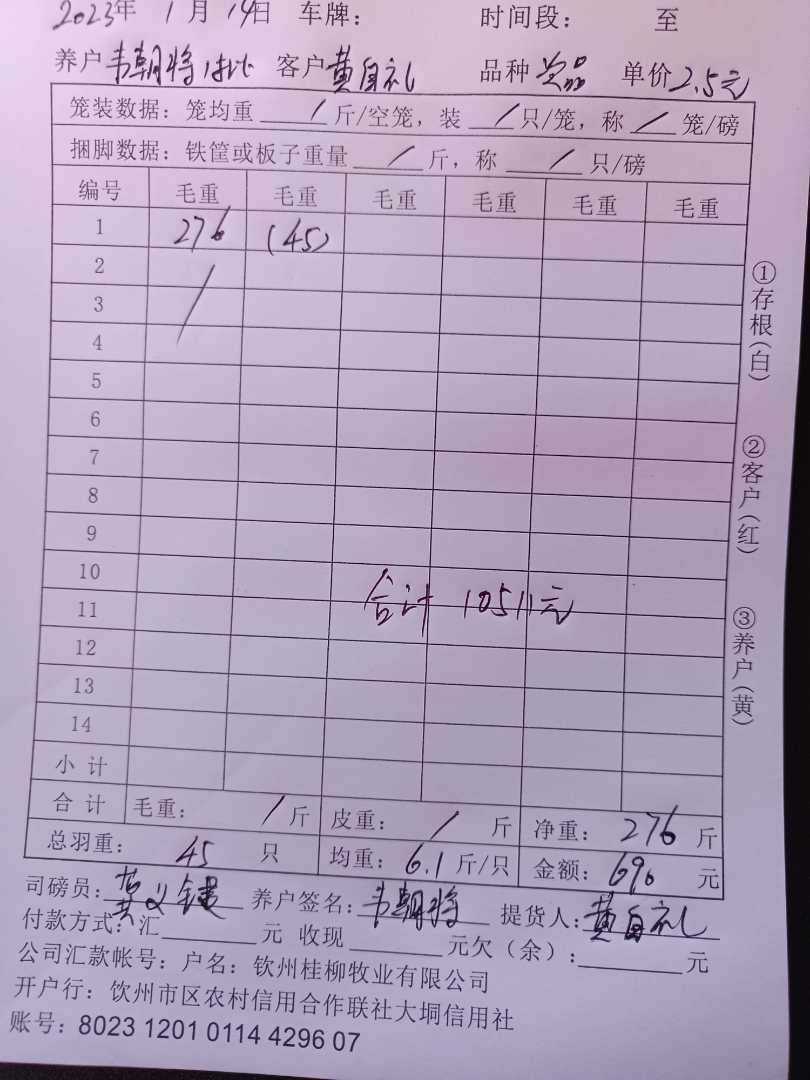 2023年 1 月 14日 车牌: 时间段: 至
养户 韦朝将 客户 黄自礼 品种 单价 2.5元
笼装数据: 笼均重 / 斤/空笼, 装 / 只/笼, 称 / 笼/磅
捆脚数据: 铁筐或板子重量 / 斤, 称 / 只/磅
编号 毛重 毛重 毛重 毛重 毛重 毛重
1 276 (45)
2 /
3
4
5
6
7
8
9
10 合计 10511元
11
12
13
14
小 计
合 计 毛重: / 斤 皮重: / 斤 净重: 276 斤
总羽重: 45 只 均重: 6.1 斤/只 金额: 690 元
司磅员: 黄义键 养户签名: 韦朝将 提货人: 黄自礼
付款方式: 汇 元 收现 元欠(余): 元
公司汇款帐号: 户名: 钦州桂柳牧业有限公司
开户行: 钦州市区农村信用合作联社大垌信用社
账号: 8023 1201 0114 4296 07
①存根(白)
②客户(红)
③养户(黄)